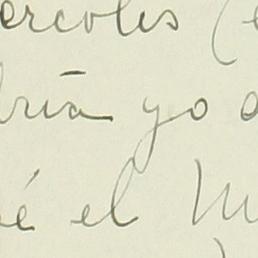 ercoles (
ría yo
é el